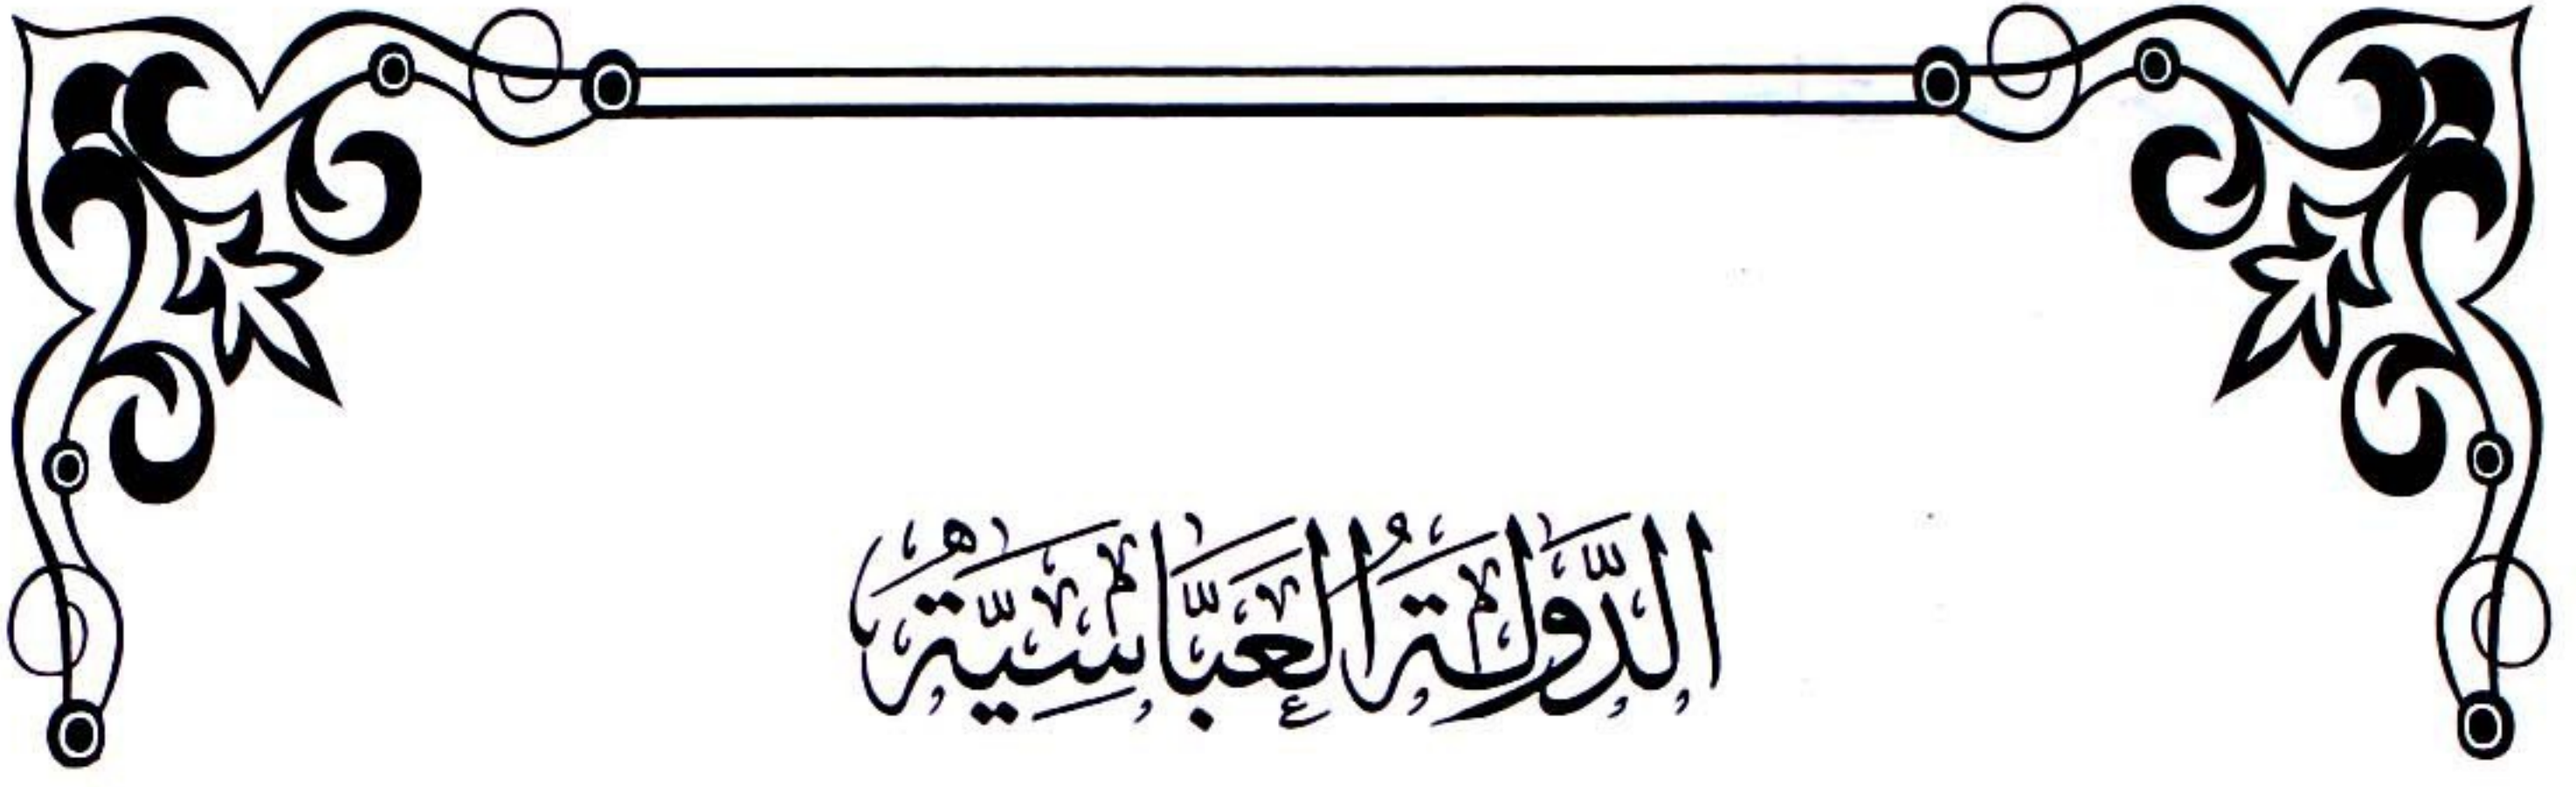 الدَّوْلَةُ الْعَبَّاسِيَّةُ